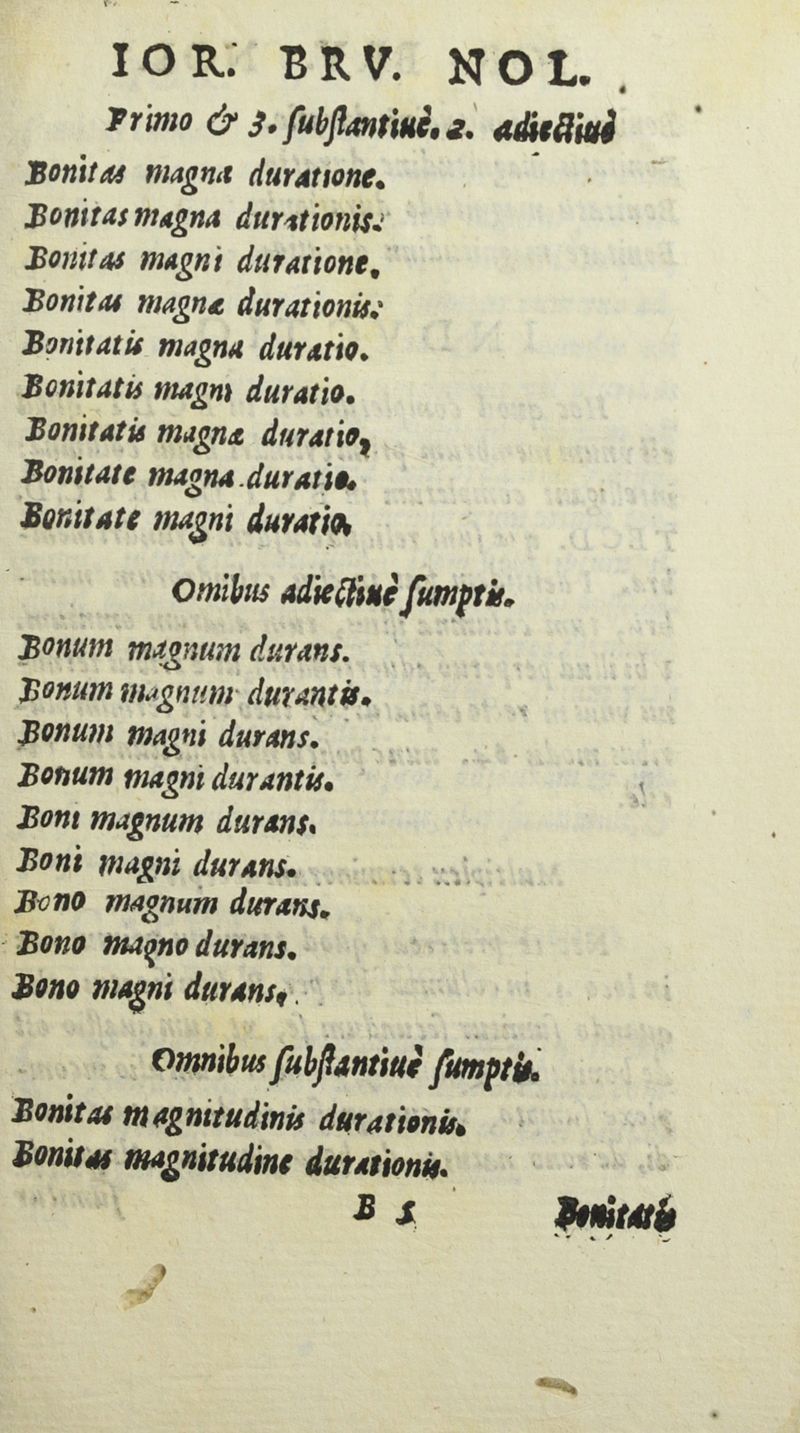 IOR. BRV. NOL.
Primo & 3. ſubſtantiuè. 2. adiectiuè
Bonitas magna duratione.
Bonitas magna durationis.
Bonitas magni duratione,
Bonitas magnæ durationis:
Bonitatis magna duratio.
Bonitatis magni duratio.
Bonitatis magnæ duratio,
Bonitate magna duratio.
Bonitate magni duratio,
Omibus adiectiuè ſumptis.
Bonum magnum durans.
Bonum magnum durantis.
Bonum magni durans.
Bonum magni durantis.
Boni magnum durans.
Boni magni durans.
Bono magnum durans.
Bono magno durans.
Bono magni durans,
Omnibus ſubſtantiuè ſumptis.
Bonitas magnitudinis durationis.
Bonitas magnitudine durationis.
B 5 Bonitatis